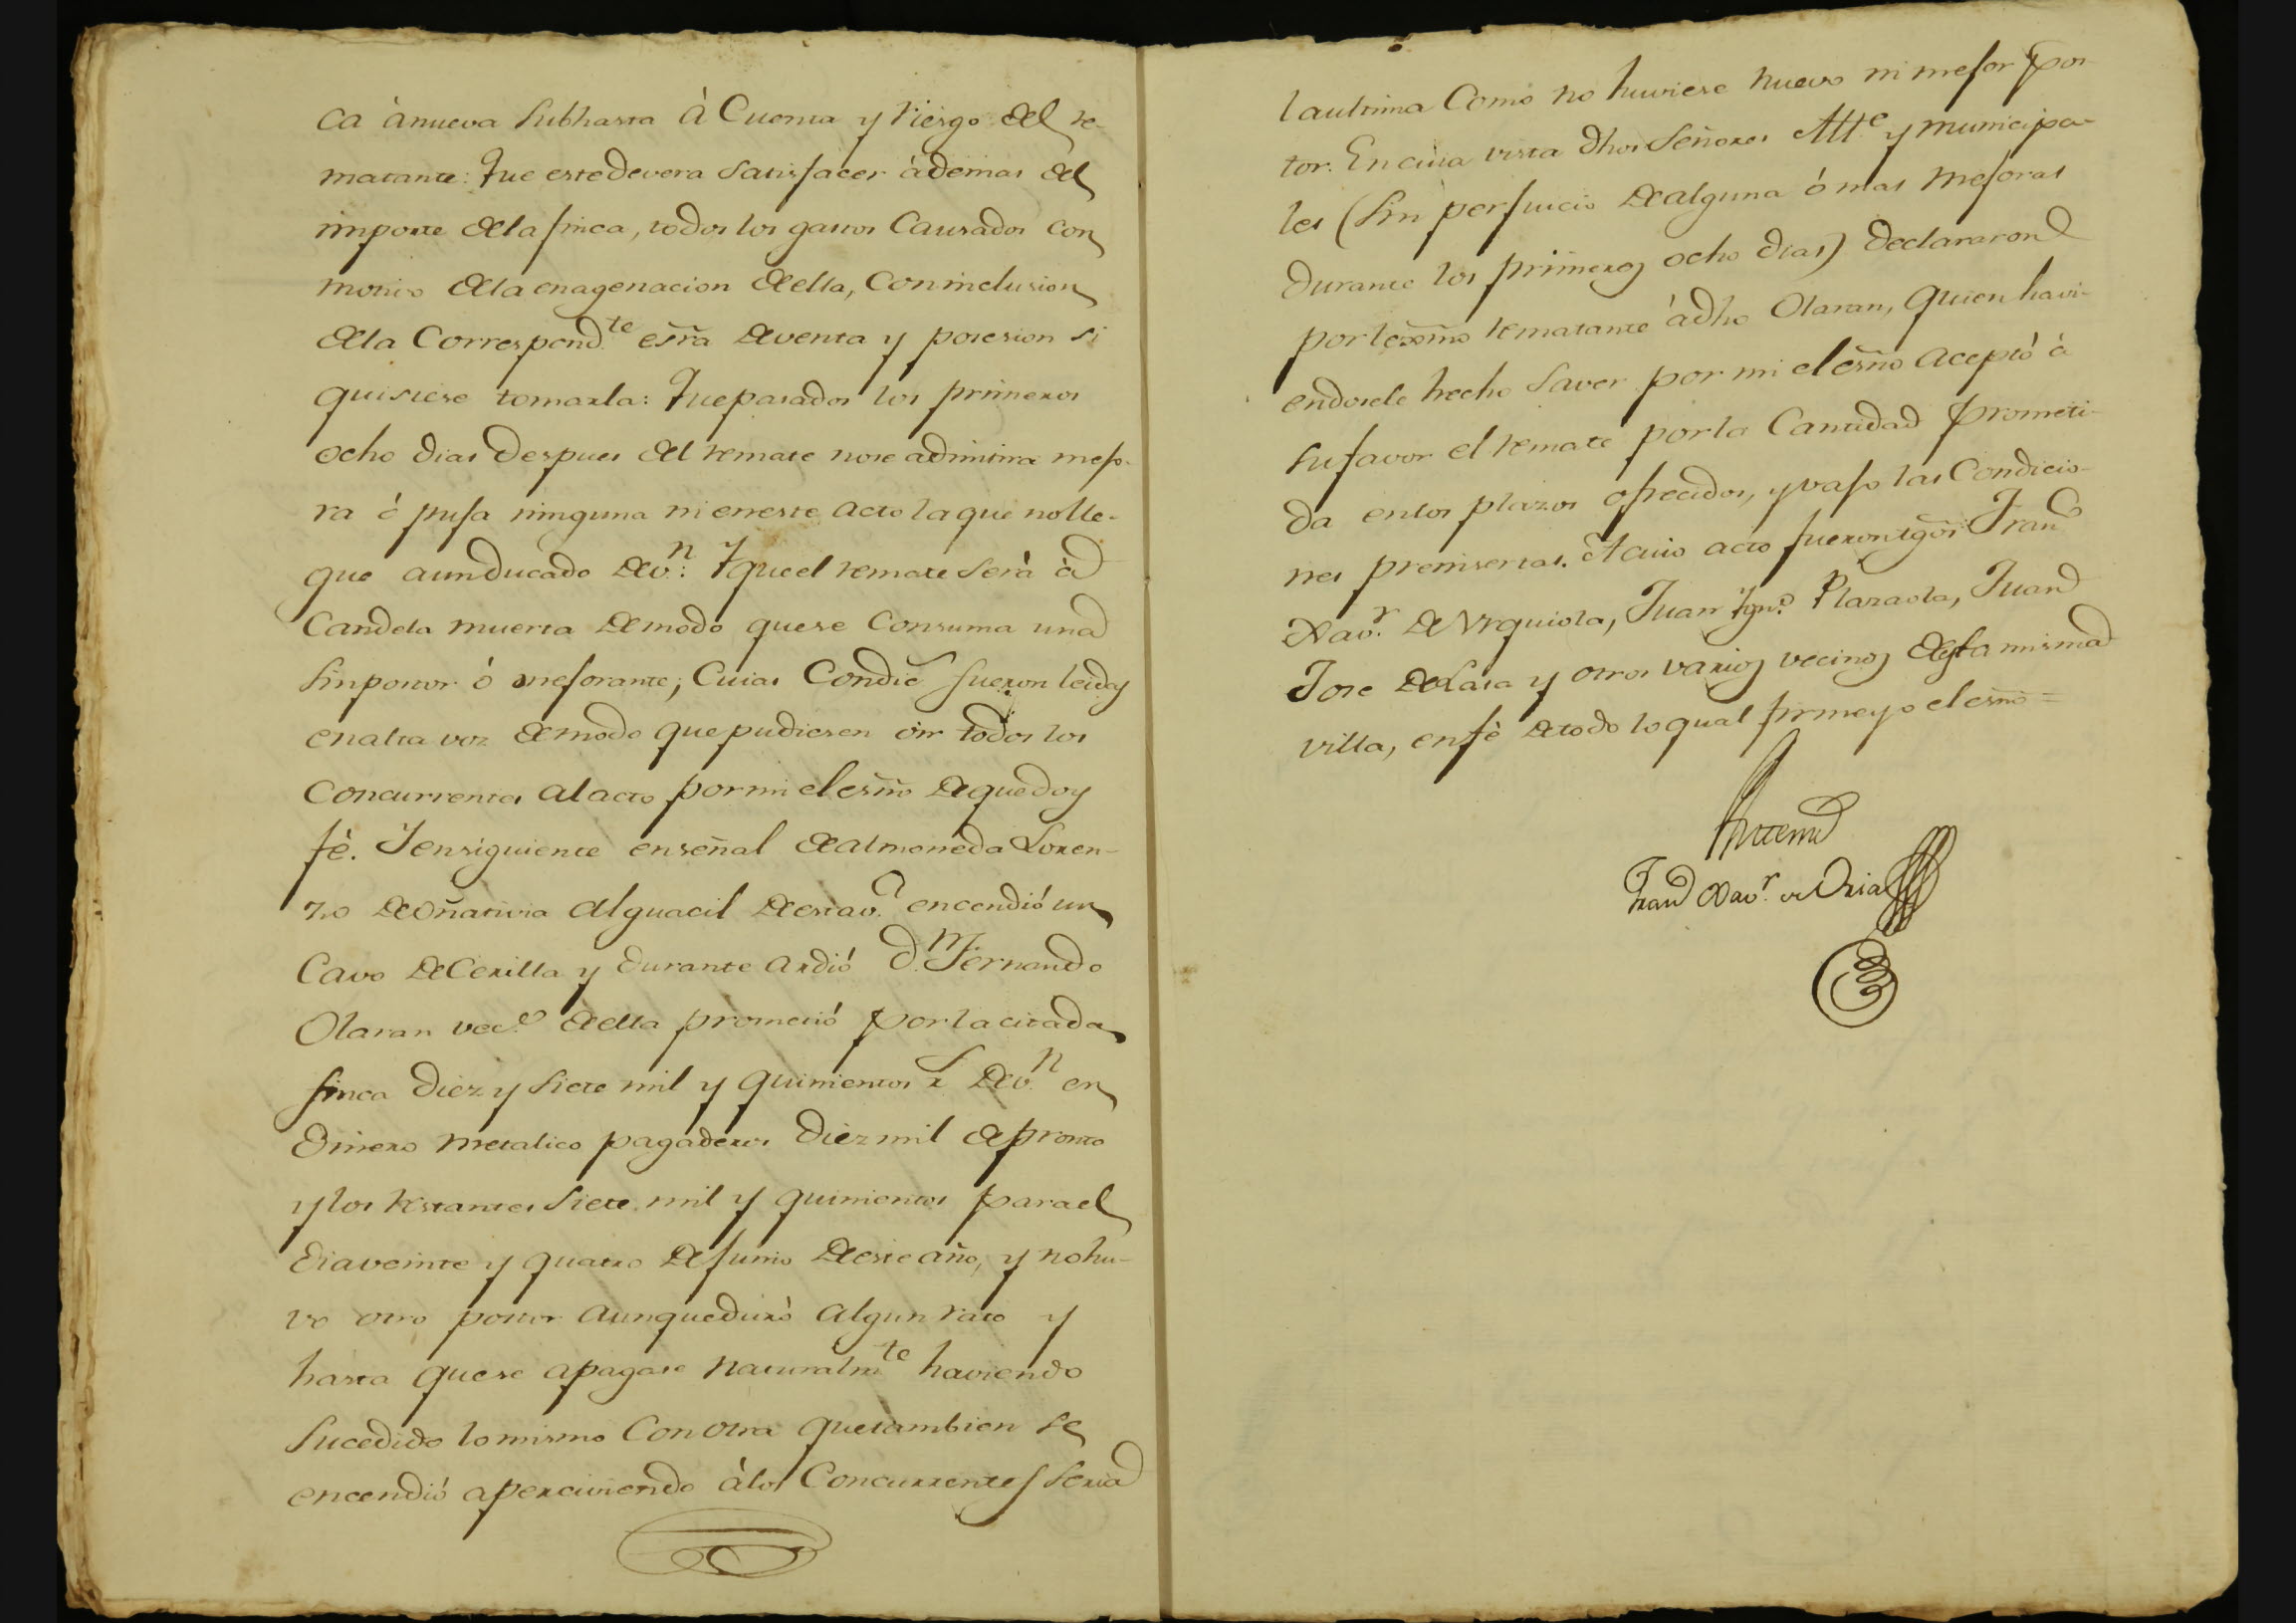 ca à nueva subhasta à Cuenta y riesgo del re-
matante: Que este devera satisfacer àdemas del
importe dela finca, todos los gastos Causados con
motivo dela enagenacion de ella, con inclusion
dela Correspond.te esrâ de venta y posesion si
quisiese tomarla: Que pasados los primeros
ocho dias despues del remate nose admitira mejo-
ra ó puja ninguna ni en este acto la que no lle-
gue a un ducado de v.n: Y que el remate serà à
Candela muerta de modo que se consuma una
sin postor ó mejorante; Cuias Condic.s fueron leidas
en alta voz de modo que pudiesen oir todos los
concurrentes al acto por mi el esño de que doy
fè. Y en siguiente en señal de almoneda Loren-
zo de Oñativia alguacil de esta v.a encendió un
Cavo de Cerilla y durante ardió d.n Fernando
Olaran vec.o de ella prometió por la citada
finca diez y siete mil y quinientos r.s de v.n en
dinero metalico pagaderos diez mil de pronto
y los restantes siete mil y quinientos para el
dia veinte y quatro de junio de este año, y no hu-
vo otro postor aunque durò algun rato y
hasta que se apagase naturalm.te haviendo
sucedido lo mismo con otra que tambien se
encendió aperciviendo à los Concurrentes seria
la ultima Como no huviese nuevo ni mejor pos-
tor. En cuia vista dhos Señores Alc.e y municipa-
les (sin perjuicio de alguna ó mas mejoras
durante los primeros ocho dias) declararon
por lexmo rematante à dho Olaran, quien havi-
endosele hecho saver por mi el esño aceptó à
su favor el remate por la Cantidad prometi-
da en los plazos ofrecidos, y vajo las Condicio-
nes preinsertas. A cuio acto fueron tgos Fran.co
Xav.r de Urquiola, Juan Ygn.o Plazaola, Juan
Jose de Lasa y otros varios vecinos de esta misma
villa, en fè de todo lo qual firme yo el esño =
Ante mi
Fran.co Xav.r de Oria